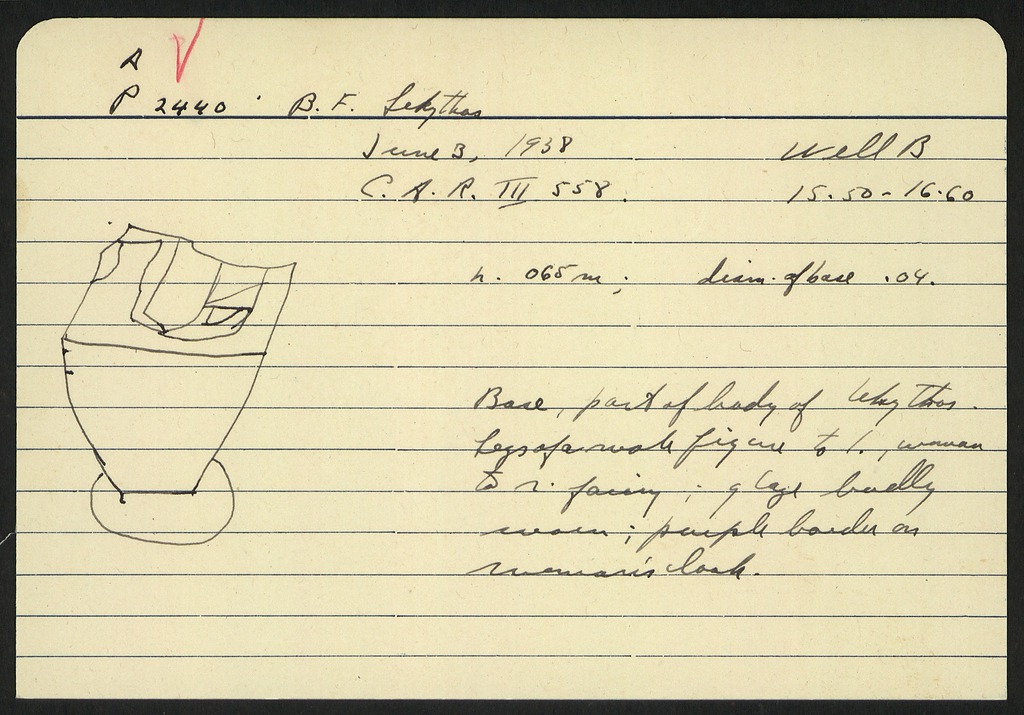 A
P 2440 . B. F. Lekythos
June 3, 1938 Well B
C. A. R. III 558. 15.50 - 16.60
h. 065 m; diam. of base .04.
Base, part of body of lekythos.
Legs of a male figure to l., woman
to r. facing; glaze badly
worn; purple border on
woman's cloak.